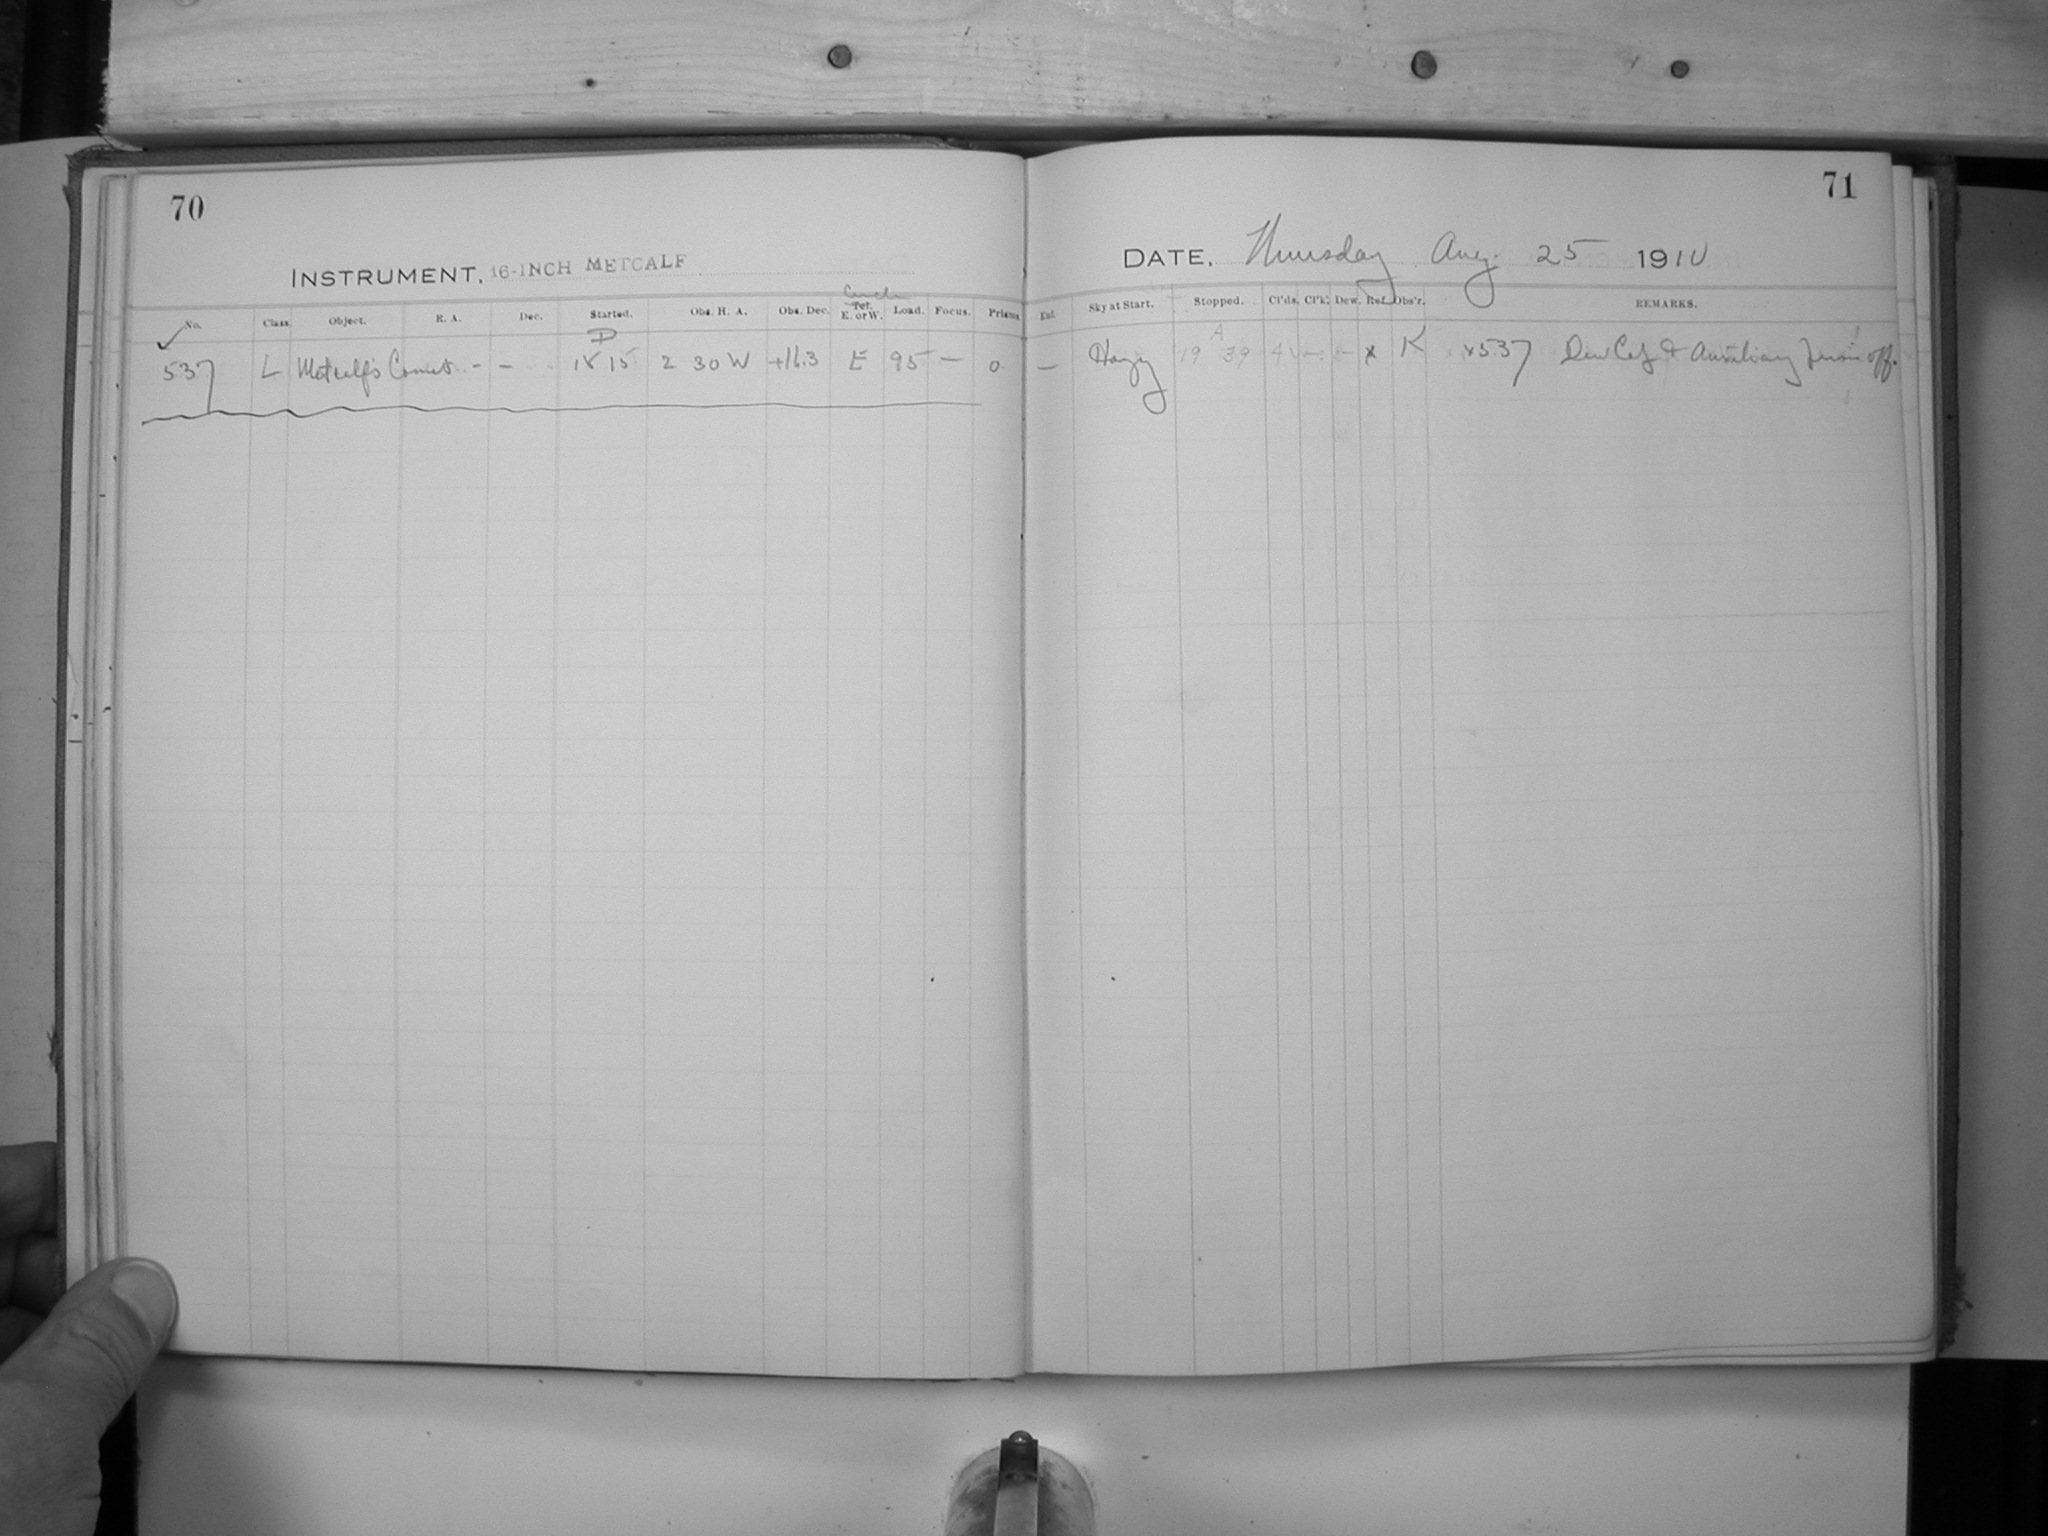 70
INSTRUMENT, 16-INCH METCALF
No. Class. Object. R. A. Dec. Started. Obs. H. A. Obs. Dec. Circle Tel. E. or W. Load. Focus. Prisms
D
537 L Metcalf's Comet - - 18 15 2 30 W +16.3 E 95 - 0
71
DATE, Thursday Aug. 25 1910
Ent. Sky at Start. Stopped. Cl'ds. Cl'k. Dew. Ref. Obs'r. REMARKS.
A
- Hazy 19 39 4 - - x K x537 Dew Cap & Auxiliary off.